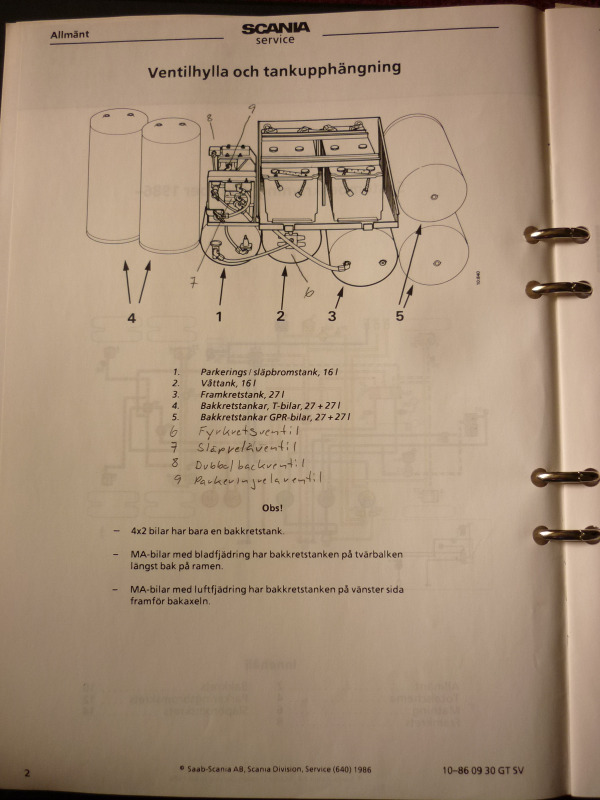 Allmänt
SCANIA
service
Ventilhylla och tankupphängning
9
8
7
6
4
1
2
3
5
10 840
1. Parkerings / släpbromstank, 16 l
2. Våttank, 16 l
3. Framkretstank, 27 l
4. Bakkretstankar, T-bilar, 27 + 27 l
5. Bakkretstankar GPR-bilar, 27 + 27 l
6 Fyrkretsventil
7 Släpreläventil
8 Dubbelbackventil
9 Parkeringrelaventil
Obs!
– 4x2 bilar har bara en bakkretstank.
– MA-bilar med bladfjädring har bakkretstanken på tvärbalken
längst bak på ramen.
– MA-bilar med luftfjädring har bakkretstanken på vänster sida
framför bakaxeln.
2
© Saab-Scania AB, Scania Division, Service (640) 1986
10–86 09 30 GT SV